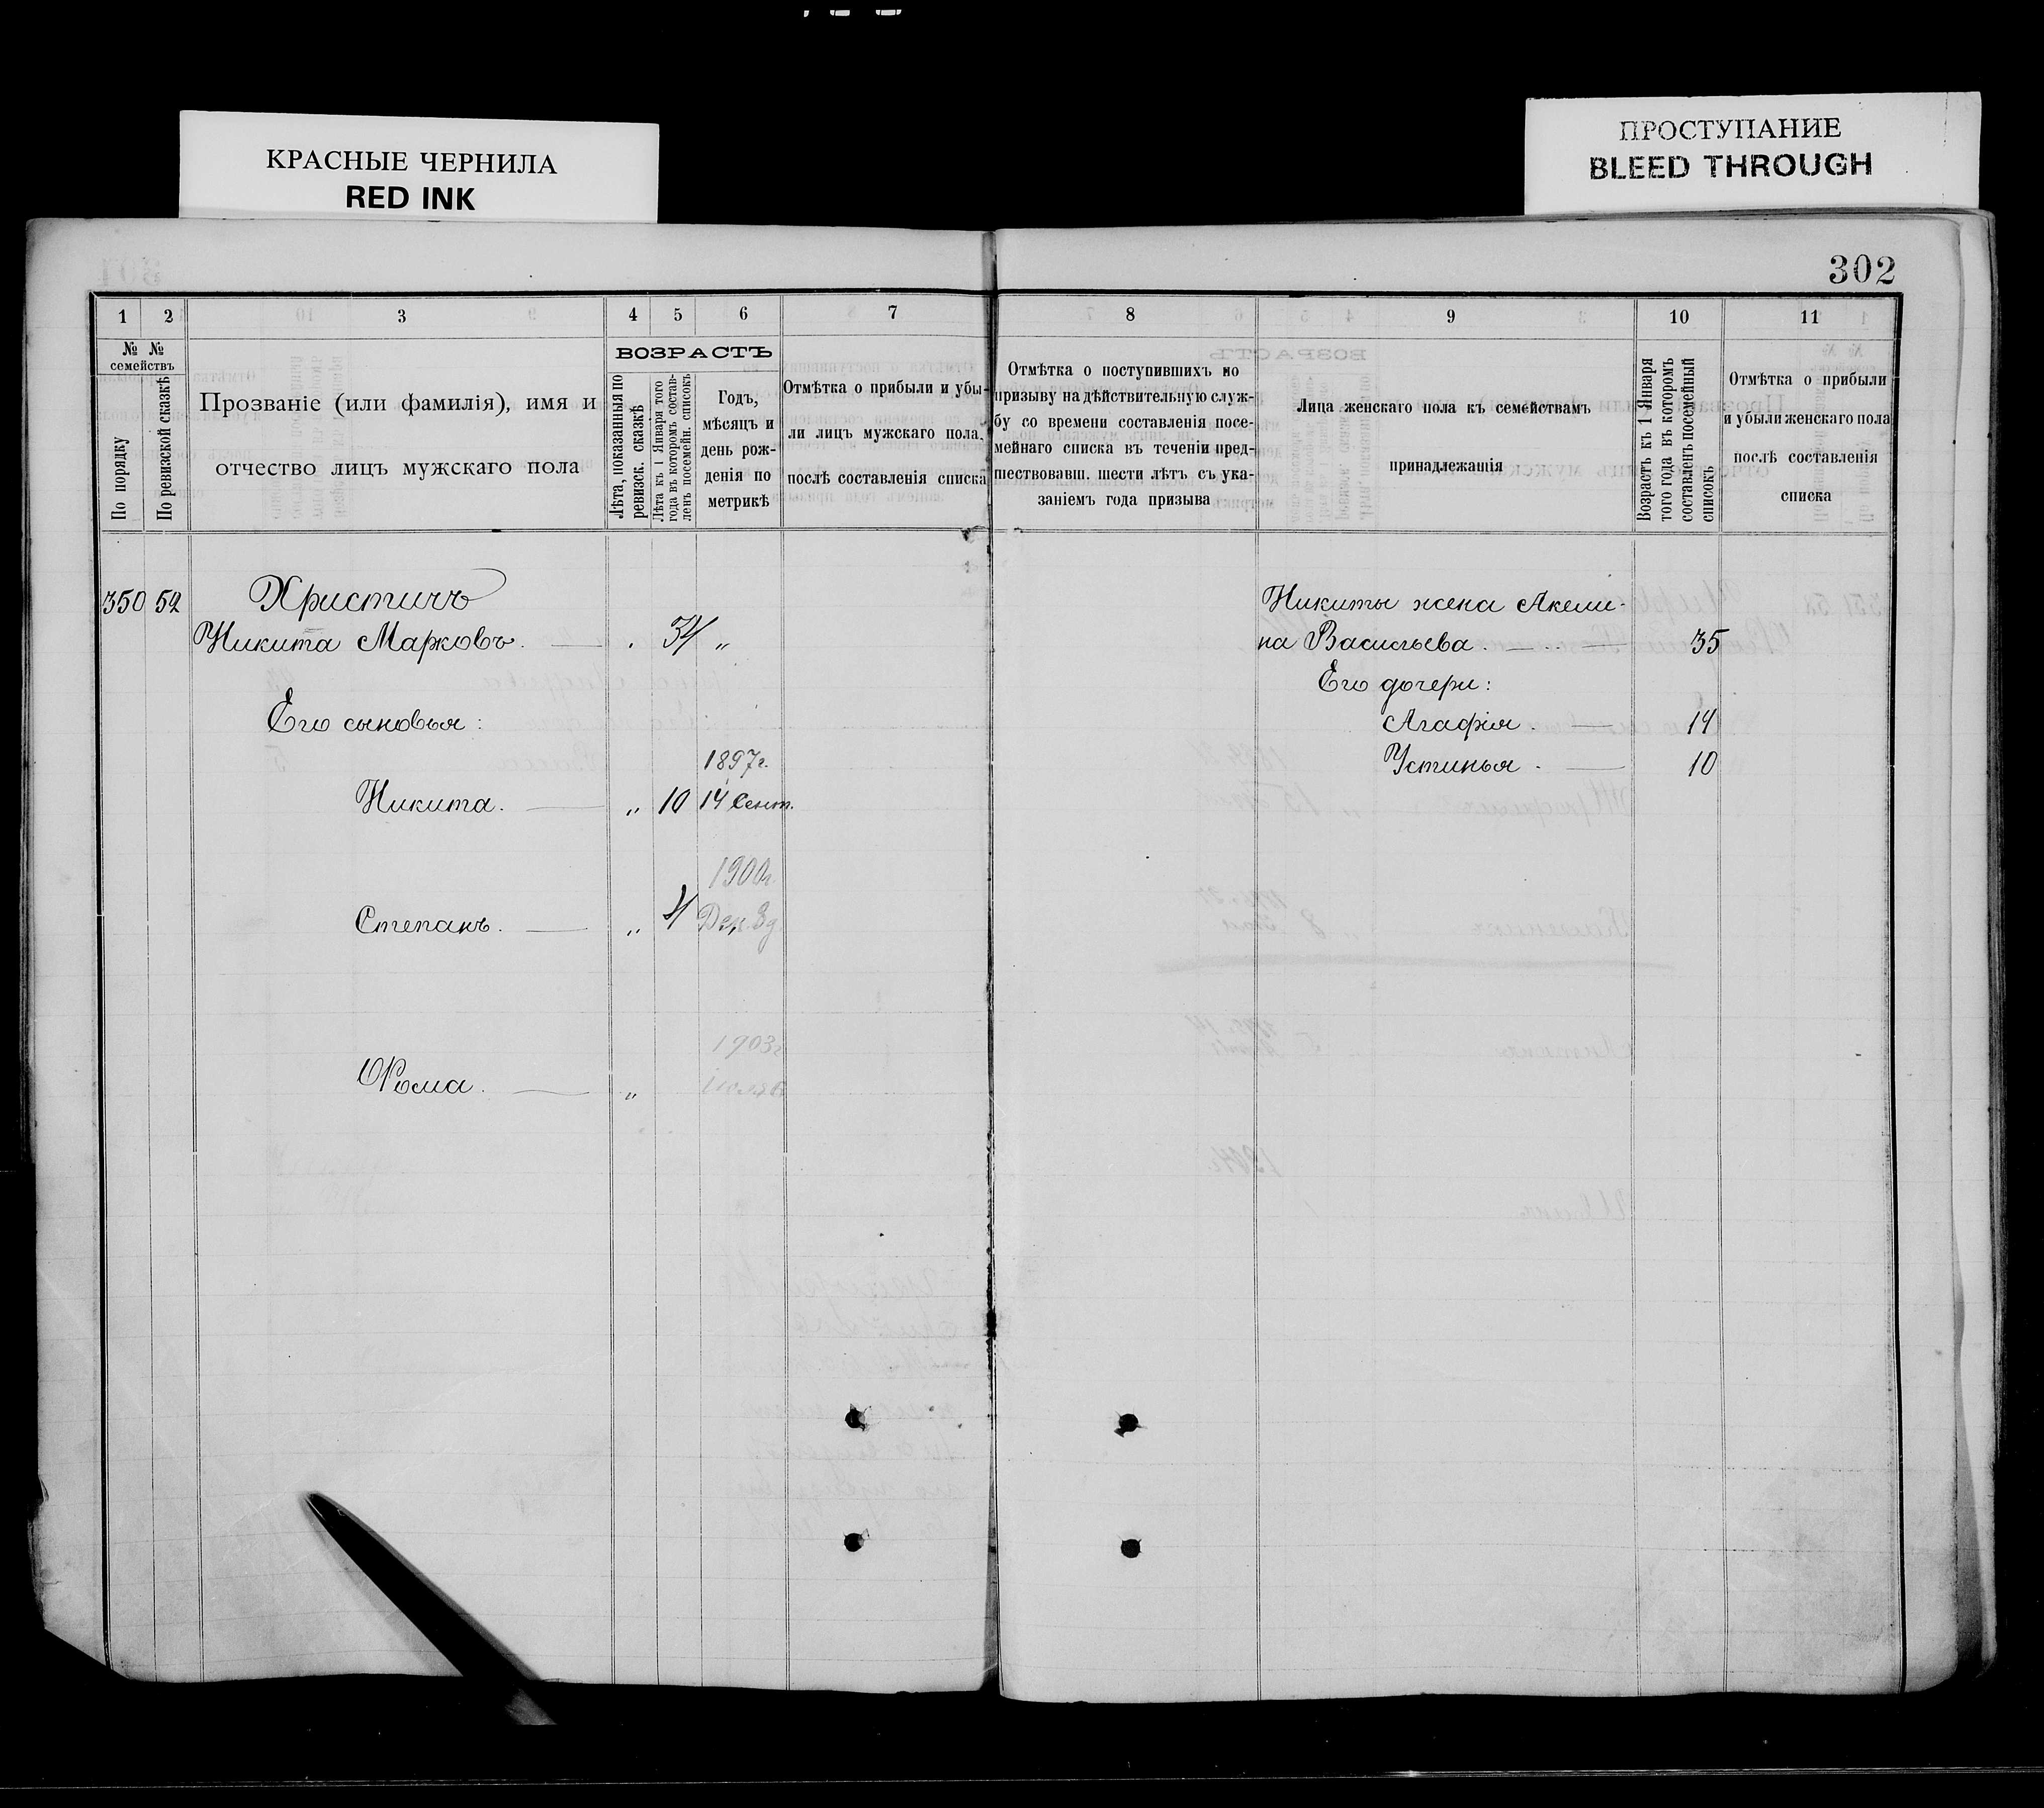 КРАСНЫЕ ЧЕРНИЛА
RED INK
ПРОСТУПАНИЕ
BLEED THROUGH
302
1 2 3 4 5 6 7 8 9 10 11
№ №
семействъ
По порядку
По ревизской сказкѣ
Прозваніе (или фамилія), имя и
отчество лицъ мужскаго пола
ВОЗРАСТЪ
Лѣта, показанныя по
ревизск. сказкѣ
Лѣта къ 1 Января того
года въ которомъ состав-
ленъ посемейн. списокъ
Годъ,
мѣсяцъ и
день рож-
денія по
метрикѣ
Отмѣтка о прибыли и убы-
ли лицъ мужскаго пола,
послѣ составленія списка
Отмѣтка о поступившихъ по
призыву на дѣйствительную служ-
бу со времени составленія посе-
мейнаго списка въ теченіи пред-
шествовавш. шести лѣтъ съ ука-
заніемъ года призыва
Лица женскаго пола къ семействамъ
принадлежашія
Возрастъ къ 1 Января
того года въ которомъ
составленъ посемейный
списокъ
Отмѣтка о прибыли
и убыли женскаго пола
послѣ составленія
списка
350 52 Христичъ
Никита Марковъ. — . 34 „
Его сыновья:
1897г.
Никита. — „ 10 14 Сент.
1900г.
Степанъ. — „ 4 Дек.
1903г
Ѳома. — „
Никиты жена Акели-
на Васильева. — 35
Его дочери:
Агафія. — 14
Устинья. — 10